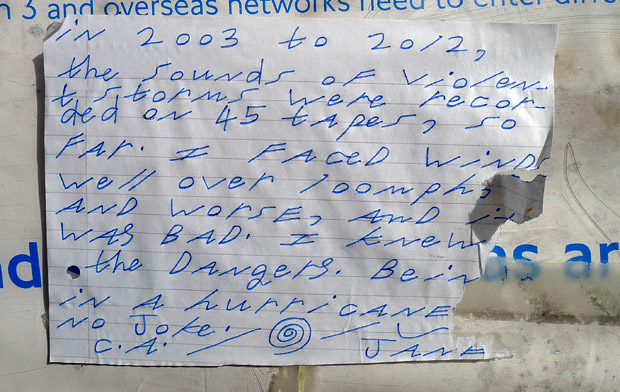 n 3 and overseas networks need to enter
in 2003 to 2012,
the sounds of violen-
t storms were recor-
ded on 45 tapes, so
far. I FACED winds
well over 100mph,
AND worse, AND
WAS BAD. I knew
the Dangers. Bein
in A hurricane
no Joke.
C.A. JANE
as ar